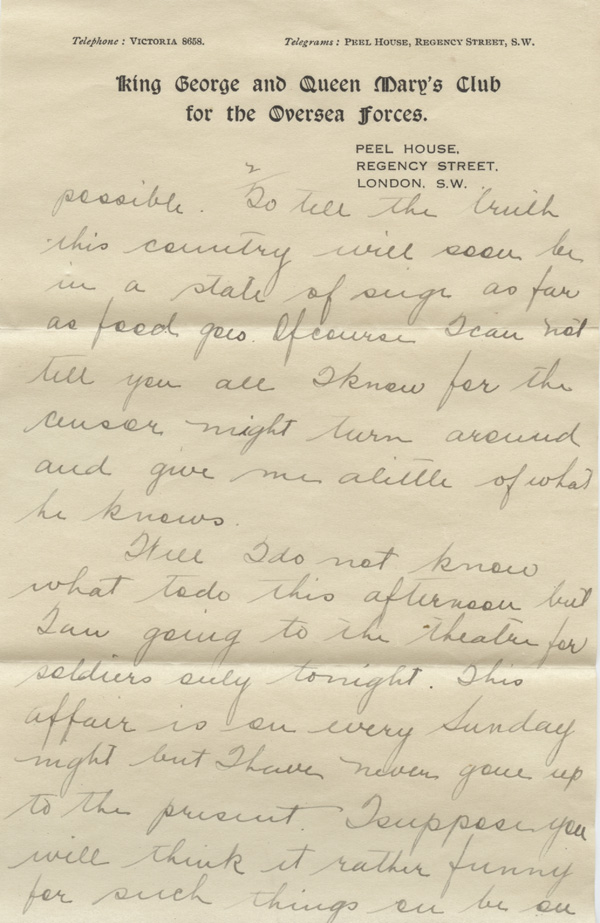 Telephone: VICTORIA 8658. Telegrams: PEEL HOUSE, REGENCY STREET, S.W.
King George and Queen Mary's Club
for the Oversea Forces.
PEEL HOUSE,
REGENCY STREET,
LONDON, S.W.
2
possible. To tell the truth
this country will soon be
in a state of seige as far
as food goes. Ofcourse I can not
tell you all I know for the
censor might turn around
and give me alittle of what
he knows.
Well I do not know
what todo this afternoon but
I am going to the theatre for
soldiers only tonight. This
affair is on every Sunday
night but I have never gone up
to the present. I suppose you
will think it rather funny
for such things on be on